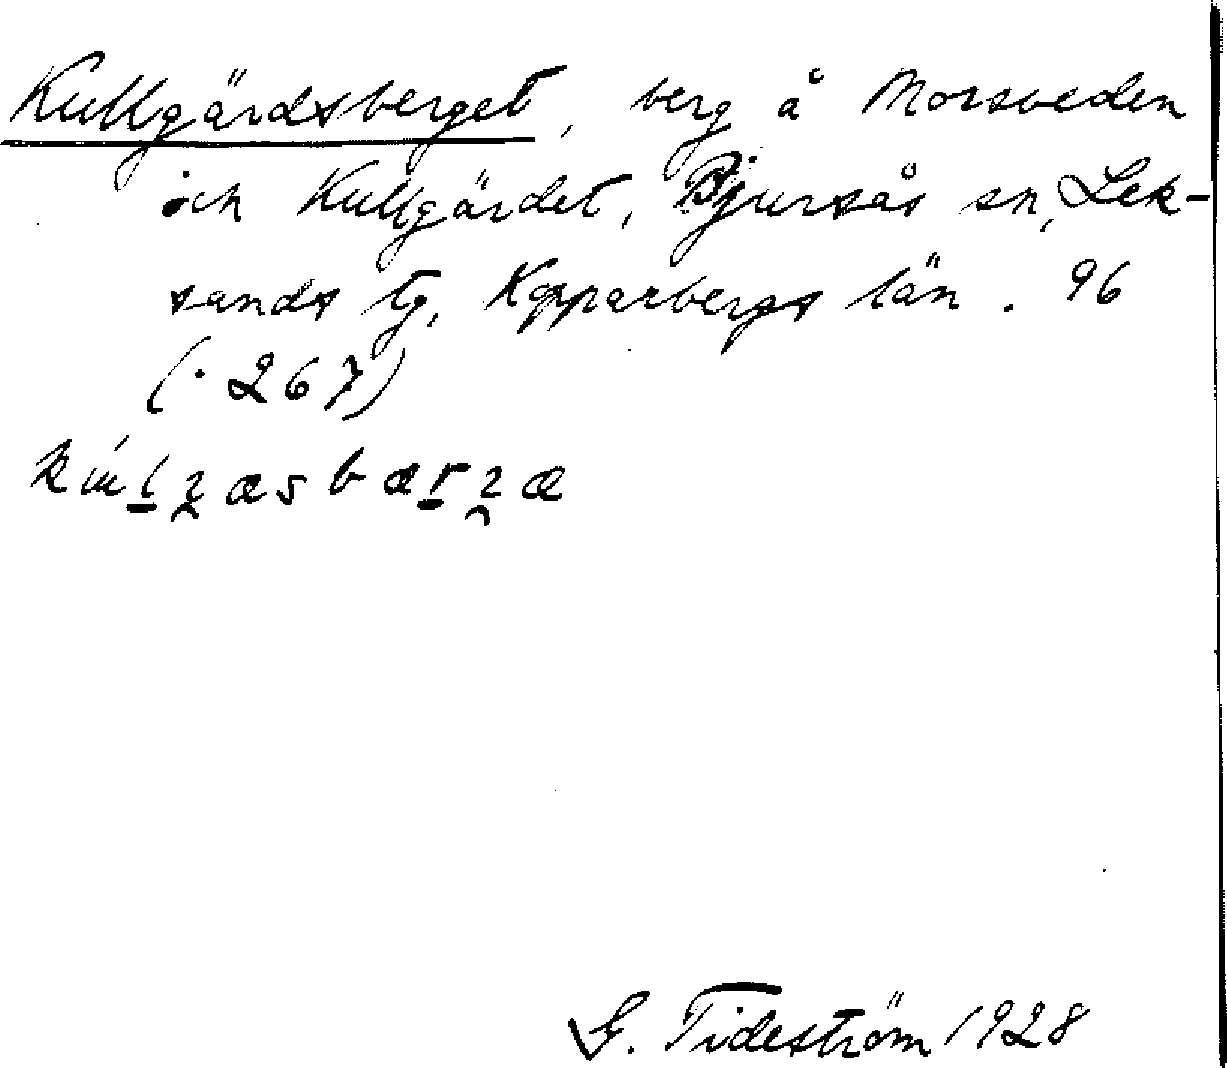 Kullgärdsberget, berg å Morsveden
och Kullgärdet, Bjursås sn, Lek-
sands tg, Kopparbergs län. 96
(· 267)
G. Tideström 1928